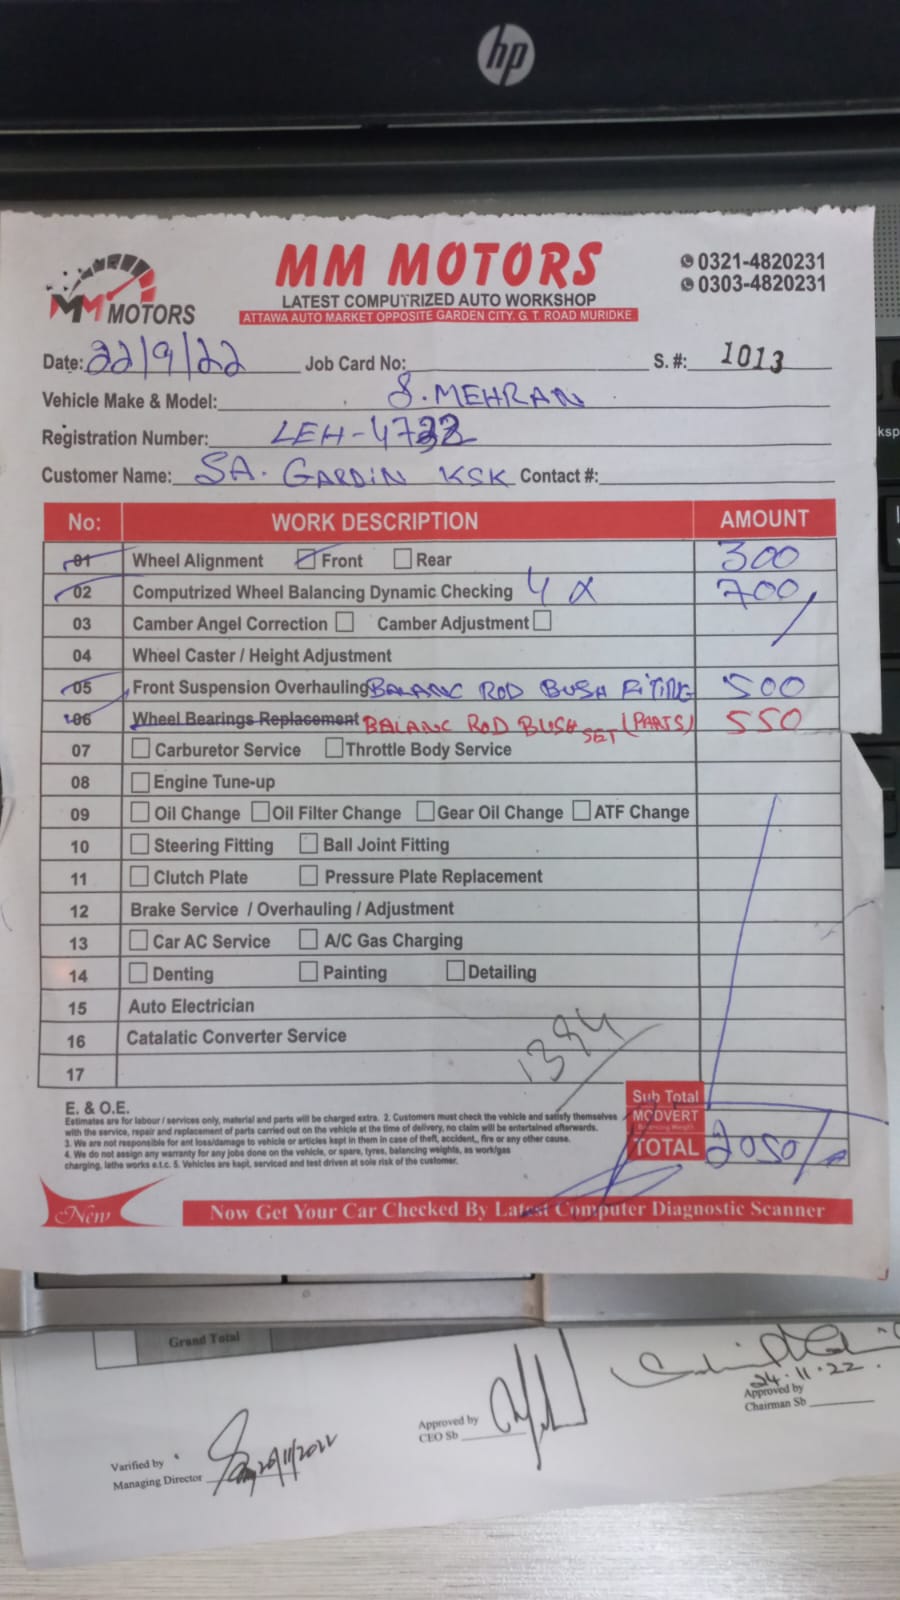 hp
MM MOTORS
MM MOTORS
LATEST COMPUTRIZED AUTO WORKSHOP
ATTAWA AUTO MARKET OPPOSITE GARDEN CITY. G. T. ROAD MURIDKE
0321-4820231
0303-4820231
Date: 22/9/22 Job Card No: S. #: 1013
Vehicle Make & Model: S. MEHRAN
Registration Number: LEH-4732
Customer Name: SA. GARDIN KSK Contact #:
No: WORK DESCRIPTION AMOUNT
01 Wheel Alignment Front Rear 300
02 Computrized Wheel Balancing Dynamic Checking 4 x 700
03 Camber Angel Correction Camber Adjustment
04 Wheel Caster / Height Adjustment
05 Front Suspension Overhauling BALANC ROD BUSH FITING 500
06 Wheel Bearings Replacement BALANC ROD BUSH SET (PARTS) 550
07 Carburetor Service Throttle Body Service
08 Engine Tune-up
09 Oil Change Oil Filter Change Gear Oil Change ATF Change
10 Steering Fitting Ball Joint Fitting
11 Clutch Plate Pressure Plate Replacement
12 Brake Service / Overhauling / Adjustment
13 Car AC Service A/C Gas Charging
14 Denting Painting Detailing
15 Auto Electrician
16 Catalatic Converter Service
17
1394
E. & O.E.
Estimates are for labour / services only, material and parts will be charged extra. 2. Customers must check the vehicle and satisfy themselves
with the service, repair and replacement of parts carried out on the vehicle at the time of delivery, no claim will be entertained afterwards.
3. We are not responsible for ant loss/damage to vehicle or articles kept in them in case of theft, accident,, fire or any other cause.
4. We do not assign any warranty for any jobs done on the vehicle, or spare, tyres, balancing weights, as work/gas
charging, lathe works e.t.c. 5. Vehicles are kept, serviced and test driven at sole risk of the customer.
Sub Total
MODVERT
Balancing Weight
TOTAL 2050/
New
Now Get Your Car Checked By Latest Computer Diagnostic Scanner
Grand Total
Varified by
Managing Director 20/11/2022
Approved by
CEO Sb
24.11.22.
Approved by
Chairman Sb